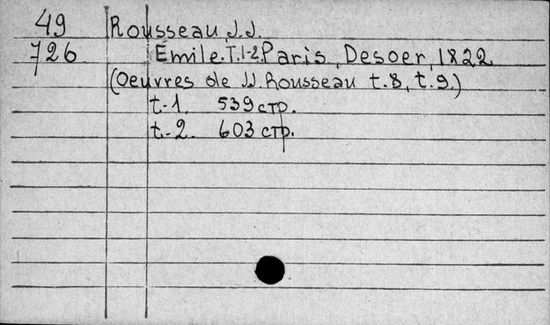 49 Rousseau, J.J.
726 Emile. T.1-2. Paris, Desoer, 1822
(Oeuvres de J.J. Rousseau t.8, t.9.)
t.1. 539 стр.
t.2. 603 стр.